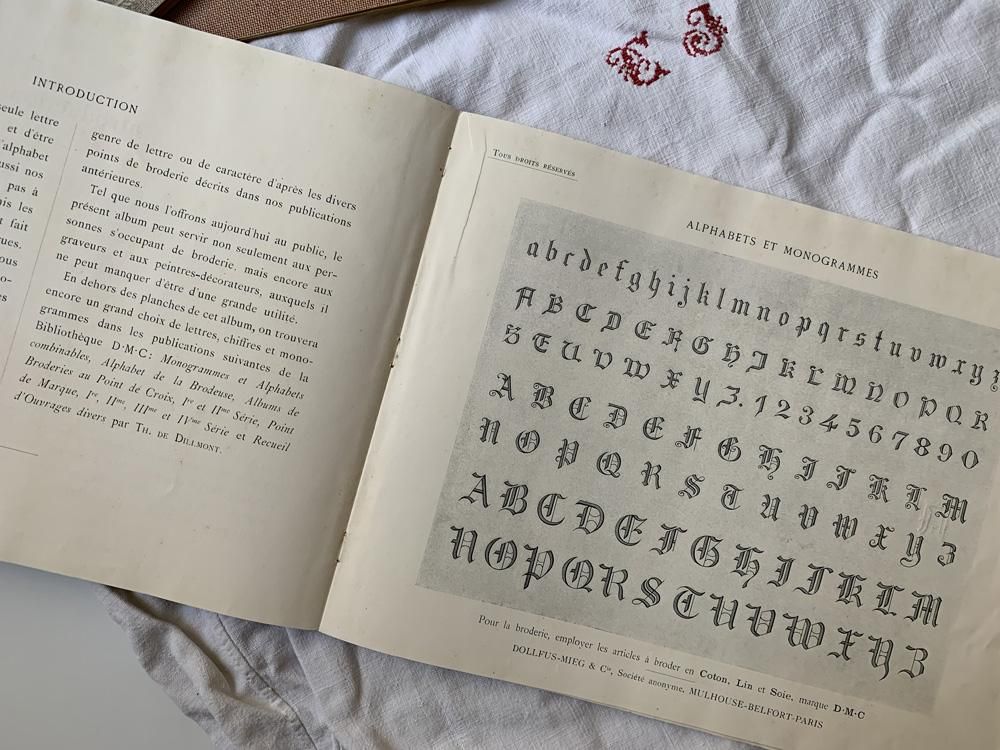 INTRODUCTION
seule lettre
et d'être
l'alphabet
ussi nos
pas à
is les
t fait
ues.
ous
o-
es
genre de lettre ou de caractère d'après les divers
points de broderie décrits dans nos publications
antérieures.
Tel que nous l'offrons aujourd'hui au public, le
présent album peut servir non seulement aux per-
sonnes s'occupant de broderie, mais encore aux
graveurs et aux peintres-décorateurs, auxquels il
ne peut manquer d'être d'une grande utilité.
En dehors des planches de cet album, on trouvera
encore un grand choix de lettres, chiffres et mono-
grammes dans les publications suivantes de la
Bibliothèque D·M·C: Monogrammes et Alphabets
combinables, Alphabet de la Brodeuse, Albums de
Broderies au Point de Croix, Ire et IIme Série, Point
de Marque, Ire, IIme, IIIme et IVme Série et Recueil
d'Ouvrages divers par TH. DE DILLMONT.
TOUS DROITS RÉSERVÉS
ALPHABETS ET MONOGRAMMES
a b c d e f g h i j k l m n o p q r s t u v w x y z
A B C D E F G H I K L M N O P Q R
S T U V W X Y Z. 1 2 3 4 5 6 7 8 9 0
A B C D E F G H I J K L M
N O P Q R S T U V W X Y Z
A B C D E F G H I J K L M
N O P Q R S T U V W X Y Z
Pour la broderie, employer les articles à broder en Coton, Lin et Soie, marque D·M·C
DOLLFUS-MIEG & Cie, Société anonyme, MULHOUSE-BELFORT-PARIS